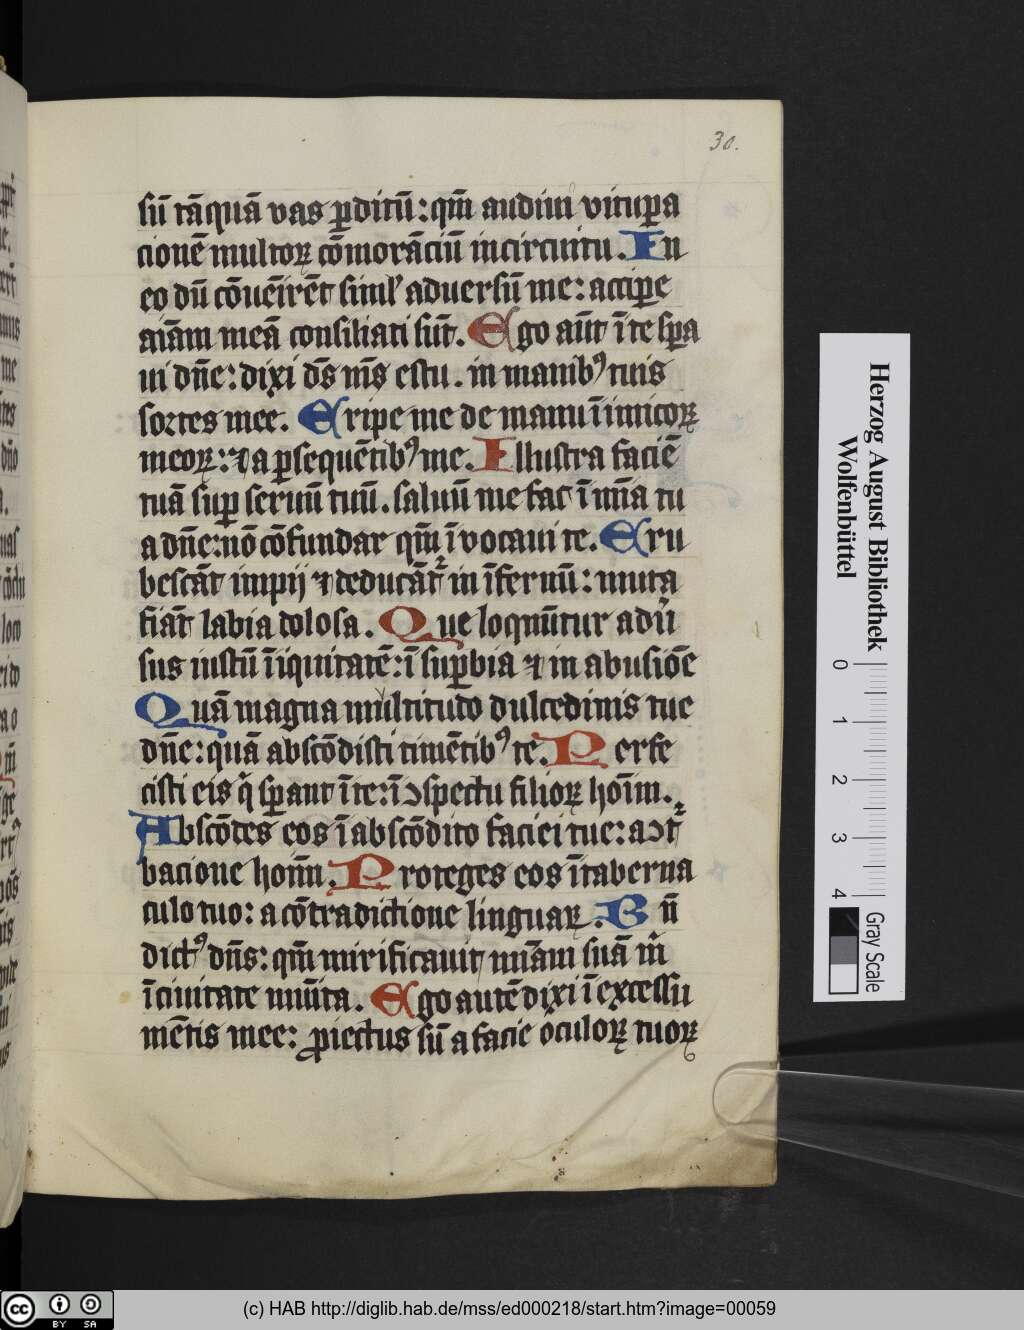 30.
sū tāquā vas ꝑditū: qm̄ audiui vituꝑa
cionē multoꝝ cōmorāciū incircuitu. In
eo dū cōuēirēt siml' aduersū me: acciꝑe
aīam meā consiliati sūt. Ego aūt ī te sꝑa
ui dn̄e: dixi ds̄ ms̄ es tu. in manibꝰ tuis
sortes mee. Eripe me de manu īimicoꝝ
meoꝝ: ⁊ a ꝑsequētibꝰ me. Illustra faciē
tuā suꝑ seruū tuū. saluū me fac ī mīa tu
a dn̄e: nō cōfundar qm̄ īvocaui te. Eru
bescāt impij ⁊ deducāt᷑ in īfernū: muta
fiāt labia dolosa. Que loqnūtur aduͥ
sus iustū īiquitatē: ī suꝑbia ⁊ in abusiōe
Quā magna multitudo dulcedinis tue
dn̄e: quā abscōdisti timētibꝰ te. Perfe
cisti eis qͥ sꝑant ī te: ī ↄspectu filioꝝ hoīm.
Abscōdes eos ī abscōdito faciei tue: a ↄt᷑
bacione hoīm. Proteges eos ī taberna
culo tuo: a cōtradictione linguaꝝ. Bn̄
dictꝰ dn̄s: qm̄ mirificauit mīam suā mͥ
ī ciuitate munīta. Ego autē dixi ī excessu
mētis mee: ꝓiectus sū a facie oculoꝝ tuoꝝ
Herzog August Bibliothek
Wolfenbüttel
0 1 2 3 4
Gray Scale
cc BY SA
(c) HAB http://diglib.hab.de/mss/ed000218/start.htm?image=00059